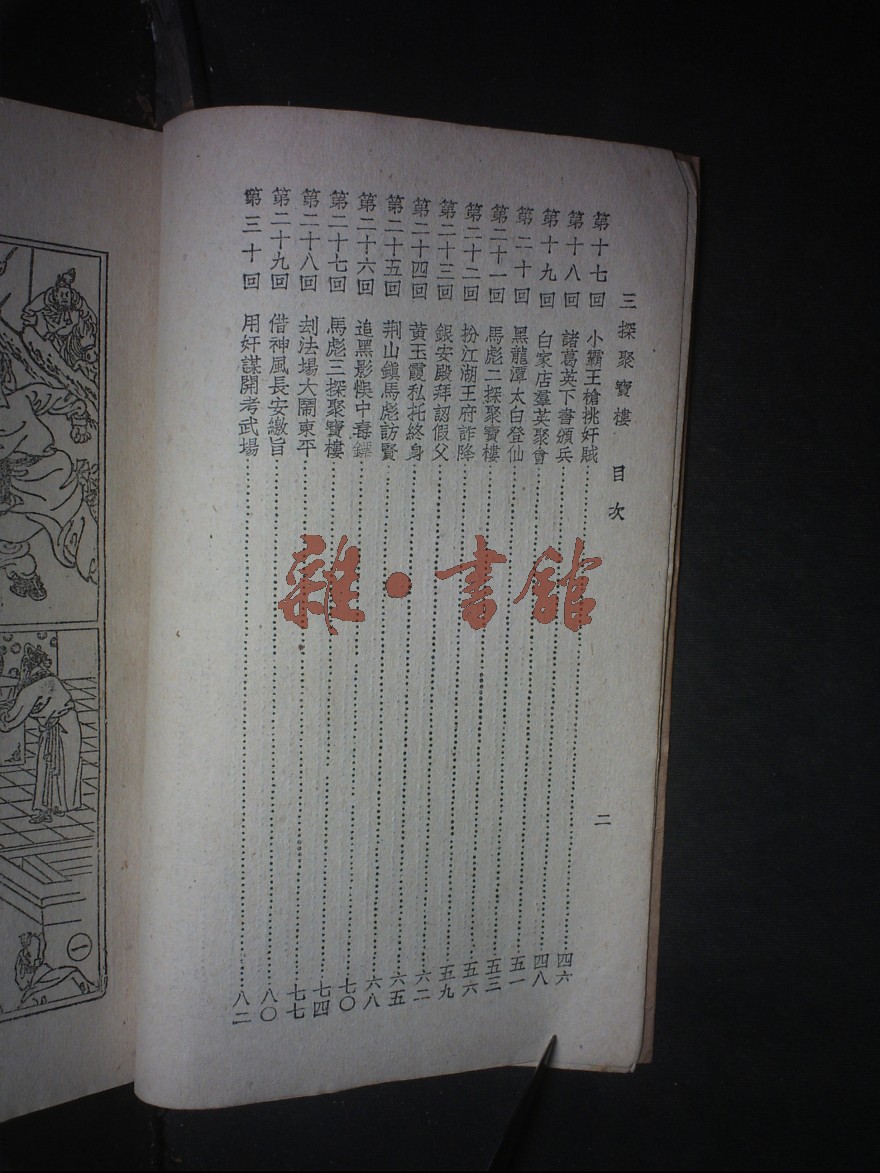 三探聚寶樓 目次 二
第十七回 小霸王槍挑奸賊 四六
第十八回 諸葛英下書頒兵 四八
第十九回 白家店羣英聚會 五一
第二十回 黑龍潭太白登仙 五三
第二十一回 馬彪二探聚寶樓 五六
第二十二回 扮江湖王府詐降 五九
第二十三回 銀安殿拜認假父 六二
第二十四回 黃玉霞私托終身 六五
第二十五回 荆山鎮馬彪訪賢 六八
第二十六回 追黑影悞中毒鏢 七〇
第二十七回 馬彪三探聚寶樓 七四
第二十八回 刦法場大鬧東平 七七
第二十九回 借神風長安繳旨 八〇
第三十回 用奸謀開考武場 八二
雜·書館
一